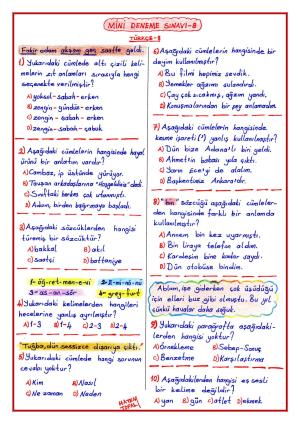 MİNİ DENEME SINAVI-8
TÜRKÇE-8
Fakir adam akşam geç saatte geldi.
1) Yukarıdaki cümlede altı çizili keli-
melerin zıt anlamları sırasıyla hangi
seçenekte verilmiştir?
A) yoksul - sabah - erken
B) zengin - gündüz - erken
C) zengin - sabah - erken
D) zengin - sabah - erken
2) Aşağıdaki cümlelerin hangisinde hayal
ürünü bir anlatım vardır?
A) Cambaz, ip üstünde yürüyor.
B) Tavşan arkadaşlarına "Hoşgeldiniz" dedi.
C) Sınıftaki herkes çok utanmıştı.
D) Adam, birden bağırmaya başladı.
3) Aşağıdaki sözcüklerden hangisi
türemiş bir sözcüktür?
A) bakkal
B) akıl
C) saatçi
D) battaniye
1- öğ-ret-men-e-vi
2- i-ni-nö-nü
3- as-an-sör
4- greyf-furt
4) Yukarıdaki kelimelerden hangileri
hecelerine yanlış ayrılmıştır?
A) 1-3
B) 1-4
C) 2-3
D) 2-4
"Tuğba, dün sessizce dışarıya çıktı."
5) Yukarıdaki cümlede hangi sorunun
cevabı yoktur?
A) Kim
B) Nasıl
C) Ne zaman
D) Neden
6) Aşağıdaki cümlelerin hangisinde bir
deyim kullanılmıştır?
A) Bu filmi hepimiz sevdik.
B) Yemekler ağzımı sulandırdı.
C) Çay çok sıcakmış, ağzım yandı.
D) Konuşmalarından bir şey anlamadım.
7) Aşağıdaki cümlelerin hangisinde
kesme işareti (') yanlış kullanılmıştır?
A) Dün bize Adana'lı biri geldi.
B) Ahmet'in babası yola çıktı.
C) Yarın Ece'yi de alalım.
D) Başkentimiz Ankara'dır.
8) "Bin" sözcüğü aşağıdaki cümleler-
den hangisinde farklı bir anlamda
kullanılmıştır?
A) Annem bin kez uyarmıştı.
B) Bin liraya telefon aldım.
C) Kardeşim bine kadar saydı.
D) Dün otobüse bindim.
Ablam, işe giderken çok üşüdüğü
için elleri buz gibi olmuştu. Bu yıl
çünkü havalar daha soğuk.
9) Yukarıdaki paragrafta aşağıdaki-
lerden hangisi yoktur?
A) Örnekleme
B) Sebep-Sonuç
C) Benzetme
D) Karşılaştırma
10) Aşağıdakilerden hangisi eş sesli
bir kelime değildir?
A) yan
B) gün
C) at
D) ekmek